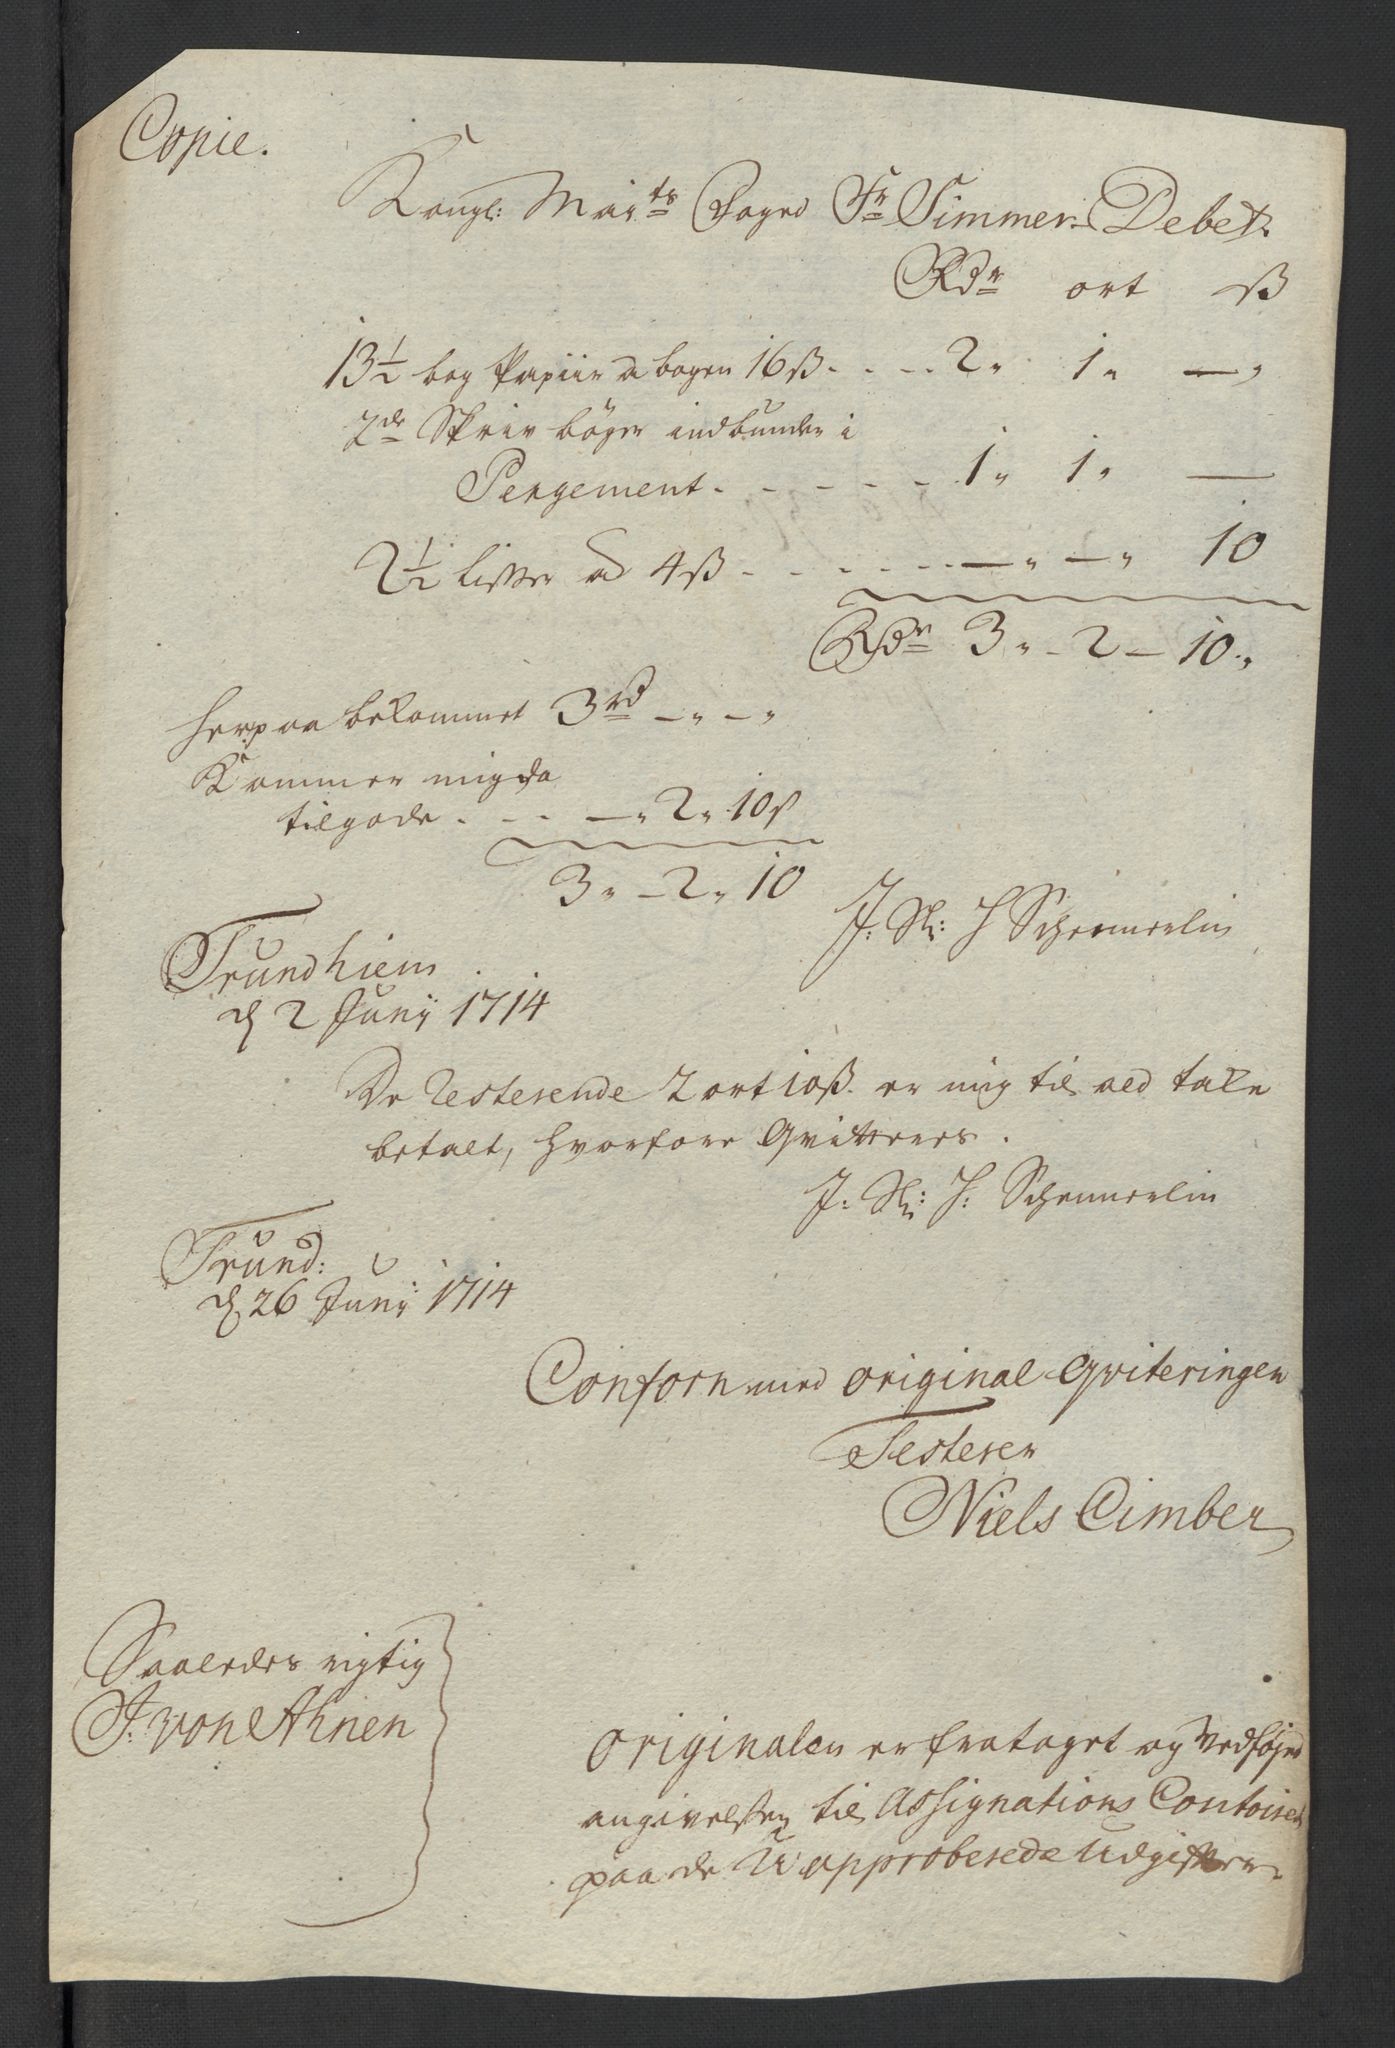 Copie.
Kongl: Maÿts Foged Sr Simmer Debet.
Rdr ort ß
13½ bog Papiir a bogen 16ß. . . . . 2" 1" —"
2de Skriv bøger indbunden i
Pergement. . . . . . . 1" 1" —
2½ lisser ad 4ß . . . . . . —" —" 10
Rdr 3" - 2 - 10"
herpaa bekommet 3rd —" —"
Kommer mig da
tilgode . . . —" 2" 10ß
3" - 2" 10
J: Sl: H Schennerlin
Trundhiem
d 2 Junÿ 1714
De Resterende 2 ort 10ß. er mig til ved take
betalt, hvorfore Qvitterers.
J: Sl: H: Schennerlin
Trund:
d. 26 Junÿ 1714
Conform med original Qviteringen
Testerer
Niels Cimber
Saaledes rigtig
J: von Ahnen
Originalen er frataget og Vedføjed
angivelsen til Assignations Contoiret
paa de Uapproberede Udgifter.